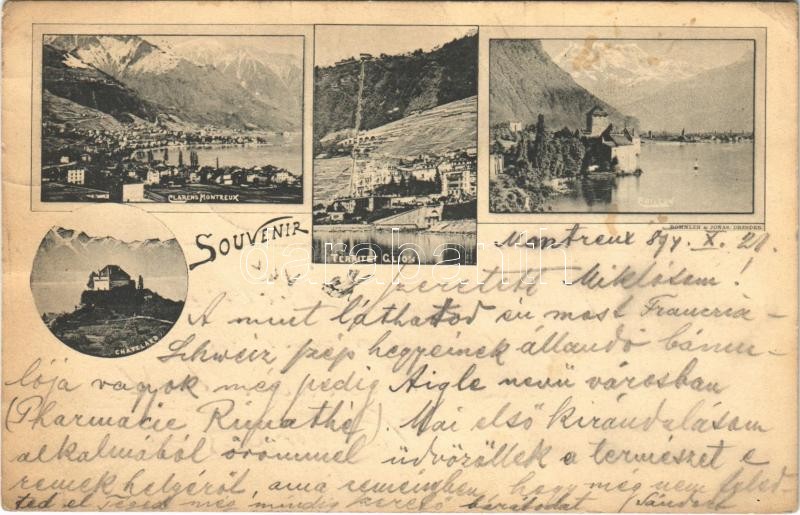 CLARENS MONTREUX
TERRITET GLION
CHILLON
ROMMLER & JONAS, DRESDEN
CHATELARD
SOUVENIR
Montreux 894. X. 21.
Szeretett Miklósom!
A mint láthatod én most Francia-
Schweiz szép hegyeinek állandó bámu-
lója vagyok még pedig Aigle nevü városban
(Pharmacie Rimathé). Mai első kirándulásom
alkalmából örömmel üdvözöllek a természet e
remek helyéről, ama reményben, hogy még nem feled
ted el Téged még mindig szerető barátodat Sándor